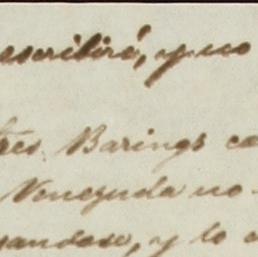 escribiré, y no
tres. Barings ca
Venezuela no
andose, y lo